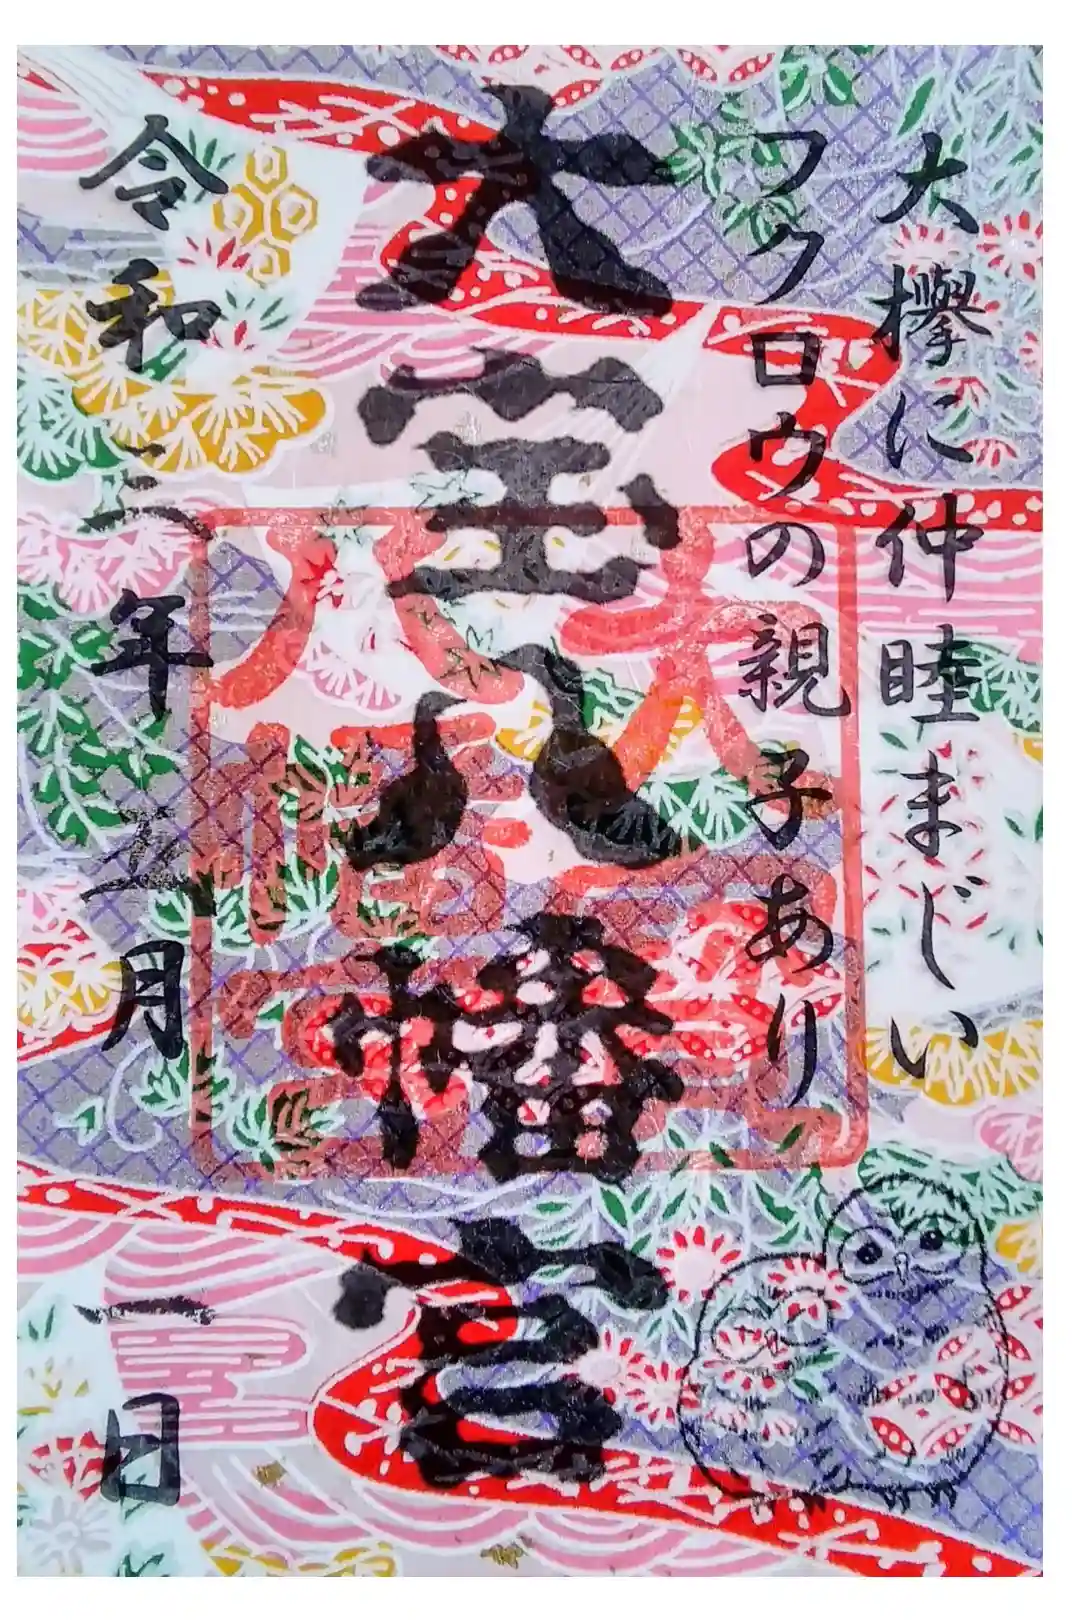 大欅に仲睦まじい
フクロウの親子あり
大宝八幡宮
令和二年五月一日